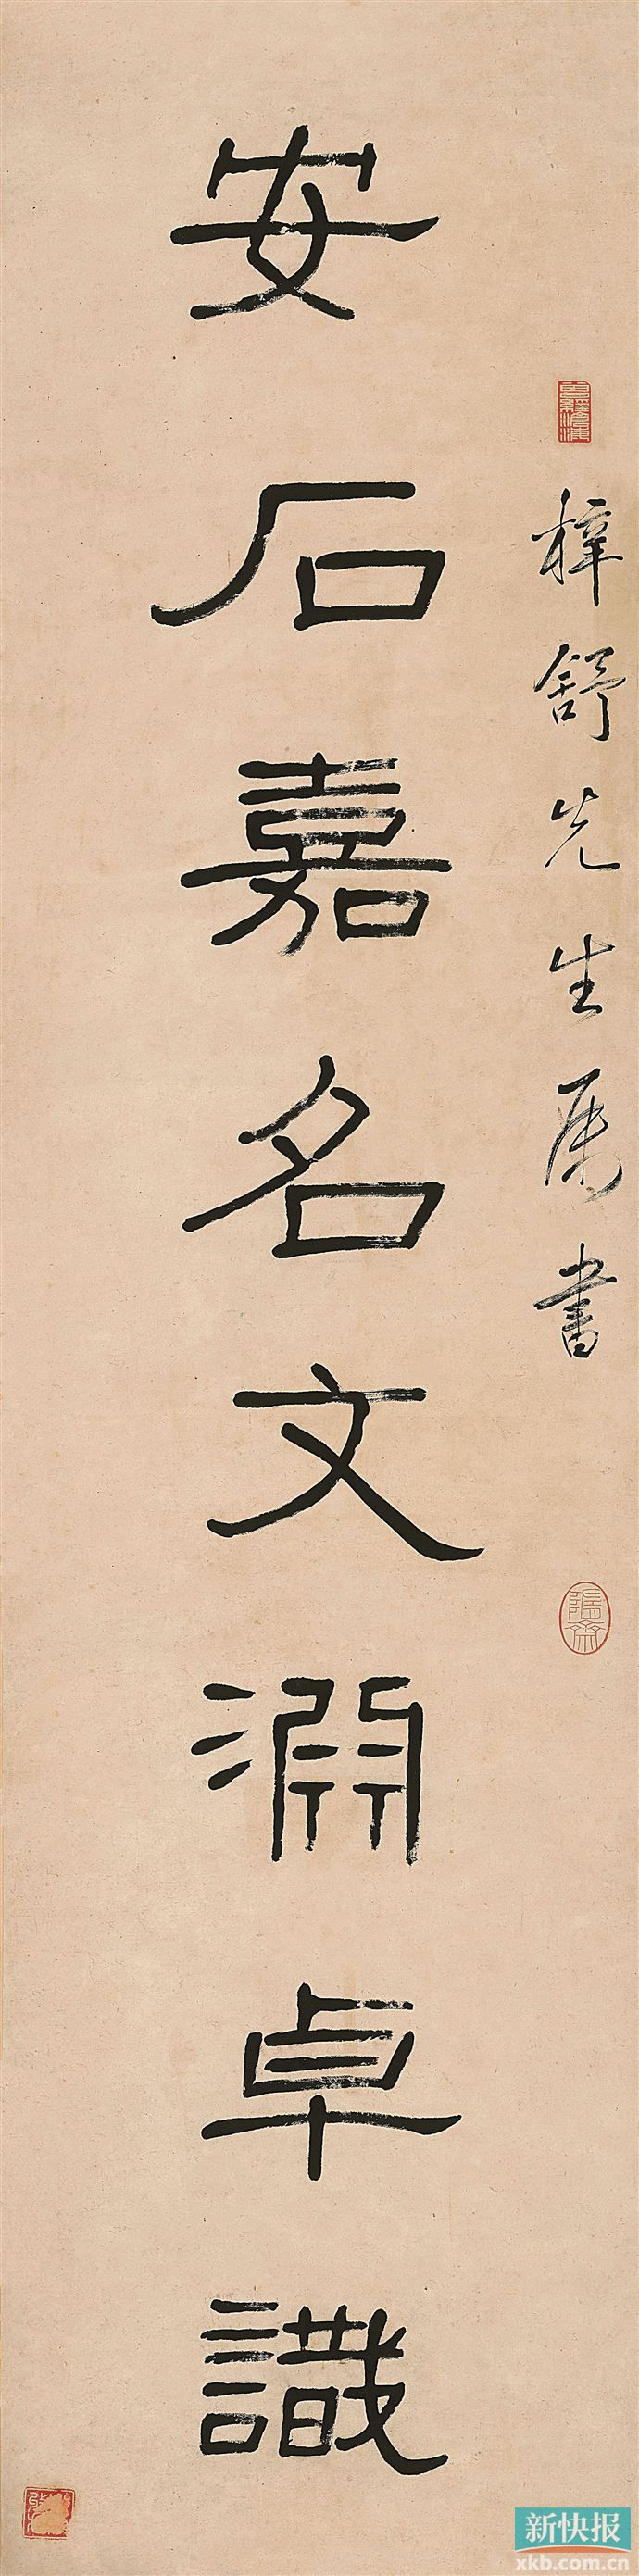 梓舒先生属書
安石嘉名文淵卓識
隱齋
新快报
xkb.com.cn